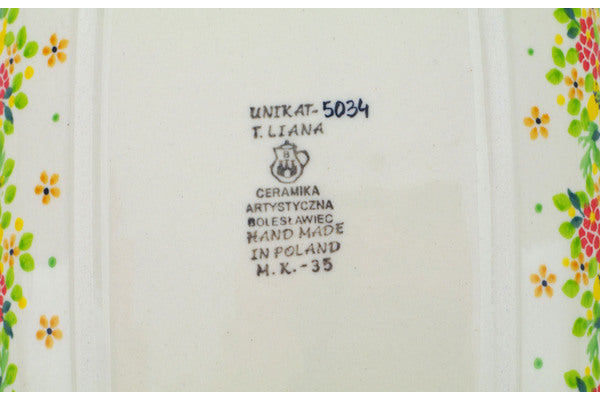 UNIKAT-5034
T. LIANA
B
CERAMIKA
ARTYSTYCZNA
BOLESŁAWIEC
HAND MADE
IN POLAND
M.K.-35